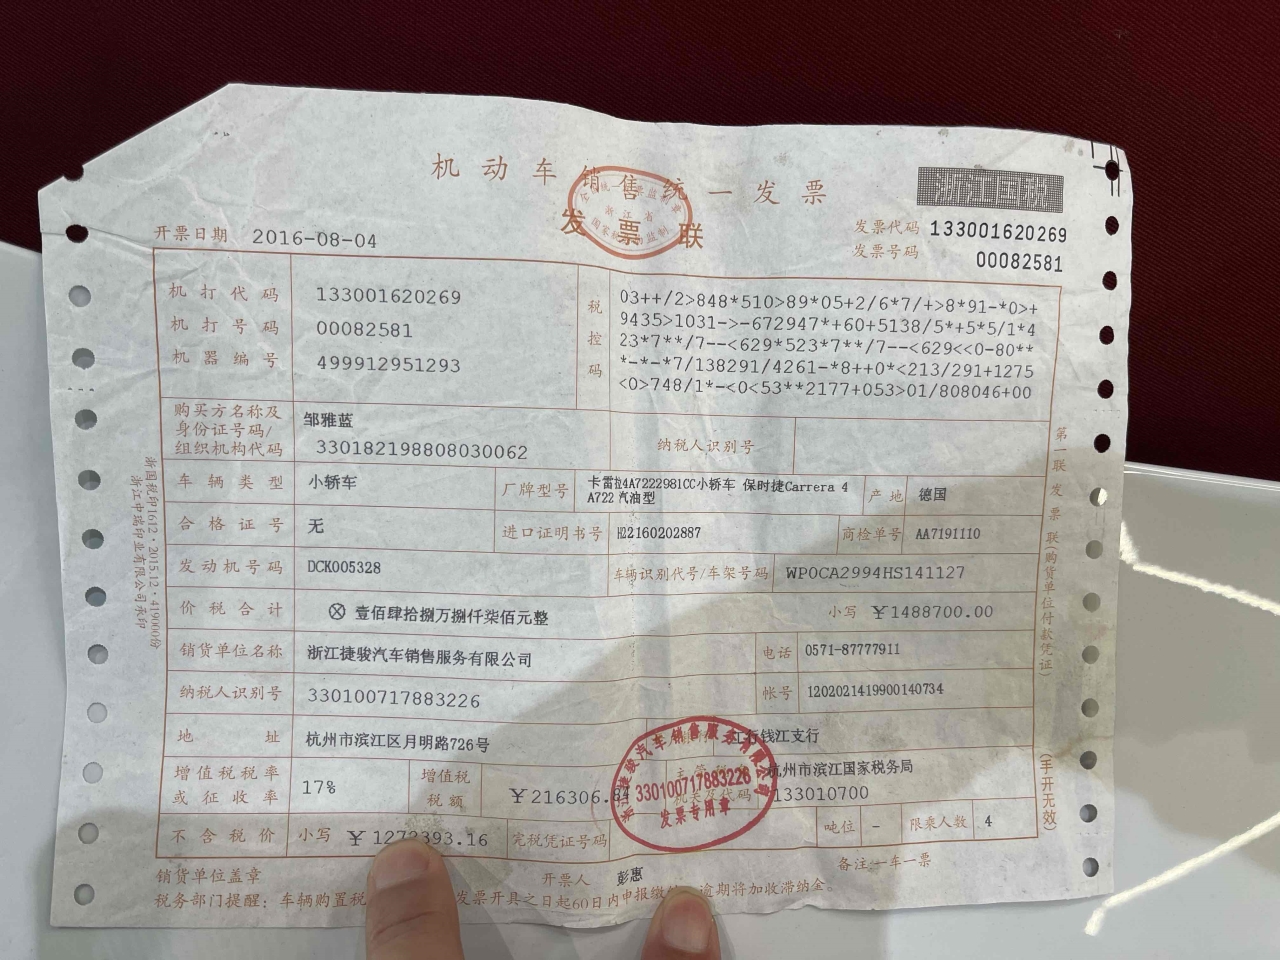 机动车销售统一发票
发票联
浙江国税
发票代码 133001620269
发票号码 00082581
开票日期 2016-08-04
机打代码 133001620269
机打号码 00082581
机器编号 499912951293
税控码
03++/2>848*510>89*05+2/6*7/+>8*91-*0>+
9435>1031->-672947*+60+5138/5*+5*5/1*4
23*7**/7--<629*523*7**/7--<629<<0-80**
*-*-*7/138291/4261-*8++0*<213/291+1275
<0>748/1*-<0<53**2177+053>01/808046+00
购买方名称及身份证号码/组织机构代码
邹雅蓝
330182198808030062
纳税人识别号
车辆类型 小轿车
厂牌型号 卡雷拉4A7222981CC小轿车 保时捷Carrera 4
A722 汽油型
产地 德国
合格证号 无
进口证明书号 H22160202887
商检单号 AA7191110
发动机号码 DCK005328
车辆识别代号/车架号码 WP0CA2994HS141127
价税合计 ⊗ 壹佰肆拾捌万捌仟柒佰元整
小写 ¥1488700.00
销货单位名称 浙江捷骏汽车销售服务有限公司
电话 0571-87777911
纳税人识别号 330100717883226
帐号 1202021419900140734
地址 杭州市滨江区月明路726号
工行钱江支行
增值税税率或征收率 17%
增值税税额 ¥216306.84
杭州市滨江国家税务局
133010700
不含税价 小写 ¥1272393.16
完税凭证号码
吨位 -
限乘人数 4
浙江捷骏汽车销售服务有限公司
330100717883226
发票专用章
销货单位盖章
开票人
备注:一车一票
税务部门提醒:车辆购置税
发票开具之日起60日内申报缴
逾期将加收滞纳金。
第一联 发票联(购货单位付款凭证)
(手开无效)
浙国税印1612·2015.12·419000份